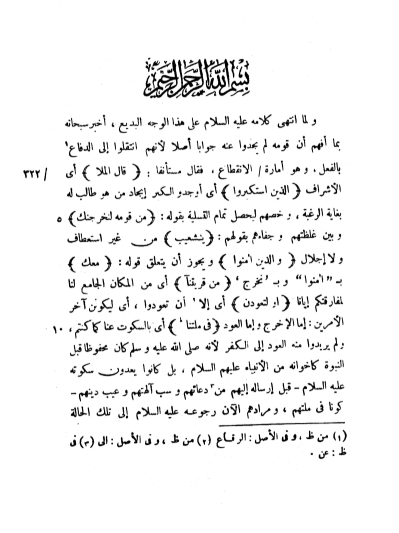 بسم الله الرحمن الرحيم
و لما انتهى كلامه عليه السلام على هذا الوجه البديع ، أخبر سبحانه
بما أفهم أن قومه لم يجدوا عنه جوابا أصلا لأنهم انتقلوا إلى الدفاع ١
بالفعل ، و هو أمارة / الانقطاع ، فقال مستأنفا : ﴿ قال الملا ﴾ أى / ٣٢٢
الأشراف ﴿ الذين استكبروا ﴾ أى أوجدو الكبر إيجاد من هو طالب له
بغاية الرغبة ، و خصهم ليحصل تمام التسلية بقوله : ﴿ من قومه لنخرجنك ﴾ ٥
و بين غلظتهم و جفاءهم بقولهم : ﴿ يشعيب ﴾ من غير استعطاف
و لا إجلال ﴿ و الذين امنوا ﴾ و يجوز أن يتعلق قوله : ﴿ معك ﴾
بـ "امنوا" و بـ "نخرج" ﴿ من قريتنآ ﴾ أى من المكان الجامع لنا
لمفارقتكم إيانا ﴿ او لتعودن ﴾ أى إلا ٢ أن تعودوا ، أى ليكونن آخر
الأمرين : إما الإخراج و إما العود ﴿ فى ملتنا ﴾ أى بالسكوت عنا كما كنتم ، ١٠
و لم يريدوا منه العود إلى الكفر لأنه صلى الله عليه و سلم كان محفوظا قبل
النبوة كاخوانه من الأنبياء عليهم السلام ، بل كانوا يعدون سكوته
عليه السلام - قبل إرساله إليهم من ٣ دعائهم و سب آلهتهم و عيب دينهم -
كونا فى ملتهم ، و مرادهم الآن رجوعه عليه السلام إلى تلك الحالة
(١) من ظ ، و فى الأصل : الرقاع (٢) من ظ ، و فى الأصل : الى (٣) فى
ظ : عن .